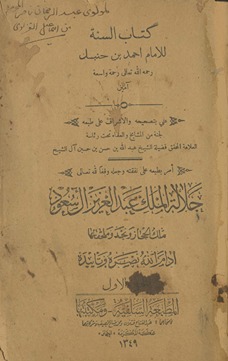 كتاب السنة
للامام احمد بن حنبل
رحمه الله تعالى رحمة واسعة
آمين
عني بتصحيحه والاشراف على طبعه
لجنة من المشايخ والعلماء تحت رئاسة
العلامة المحقق فضيلة الشيخ عبدالله بن حسن بن حسين آل الشيخ
أمر بطبعه على نفقته وجعله وقفا لله تعالى
جلالة الملك عبد العزيز آل سعود
ملك الحجاز ونجد وملحقاتها
ادام الله نصره وتأييده
الاول
المطبعة السلفية - ومكتبتها
١٣٤٩